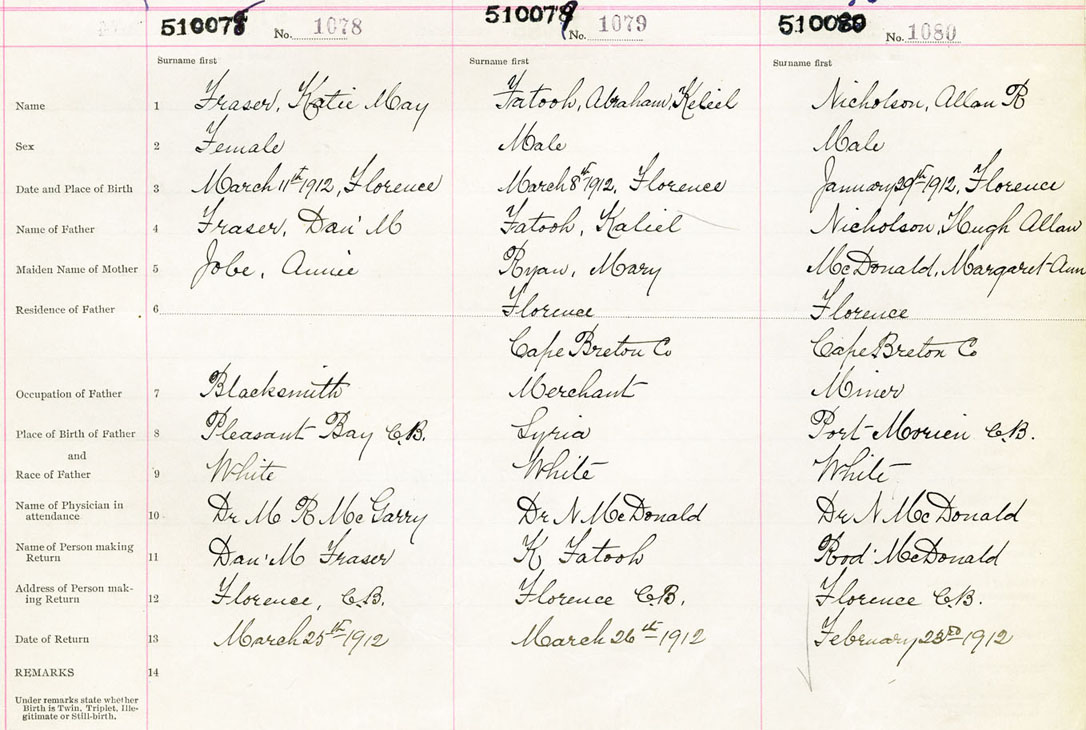 510078 No. 1078 510079 No. 1079 510080 No. 1080
Surname first Surname first Surname first
Name 1 Fraser, Katie May Fatooh, Abraham, Keliel Nicholson, Allan R
Sex 2 Female Male Male
Date and Place of Birth 3 March 11th 1912, Florence March 8th 1912, Florence January 29th 1912, Florence
Name of Father 4 Fraser, Dan' M Fatooh, Kaliel Nicholson, Hugh Allan
Maiden Name of Mother 5 Jobe, Annie Ryan, Mary McDonald, Margaret-Ann
Residence of Father 6 Florence Florence
Cape Breton Co Cape Breton Co
Occupation of Father 7 Blacksmith Merchant Miner
Place of Birth of Father 8 Pleasant Bay C.B. Syria Port Morien C.B.
and
Race of Father 9 White White White
Name of Physician in
attendance 10 Dr M R McGarry Dr N McDonald Dr N McDonald
Name of Person making
Return 11 Dan' M Fraser K Fatooh Rod' McDonald
Address of Person mak-
ing Return 12 Florence, C.B. Florence C.B. Florence C.B.
Date of Return 13 March 25th 1912 March 26th 1912 February 23rd 1912
REMARKS 14
Under remarks state whether
Birth is Twin, Triplet, Ille-
gitimate or Still-birth.